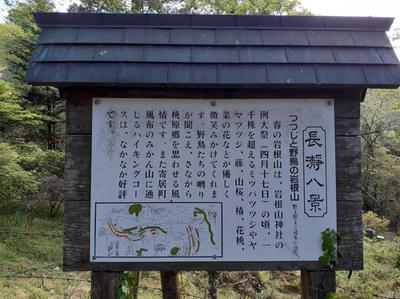 長瀞八景
つつじと野鳥の岩根山
春の岩根山は、岩根山神社の
例大祭（四月十七日）の頃、一
千株を超えるミツバツツジやヤ
マツツジ、藤、山桜、椿、花桃、
菜の花などが優しく
微笑みかけてくれま
す。野鳥たちの囀り
が聞こえ、さながら
桃原郷を思わせる風
情です。また寄居町
風布のみかん山に通
じるハイキングコー
スは、なかなか好評
です。